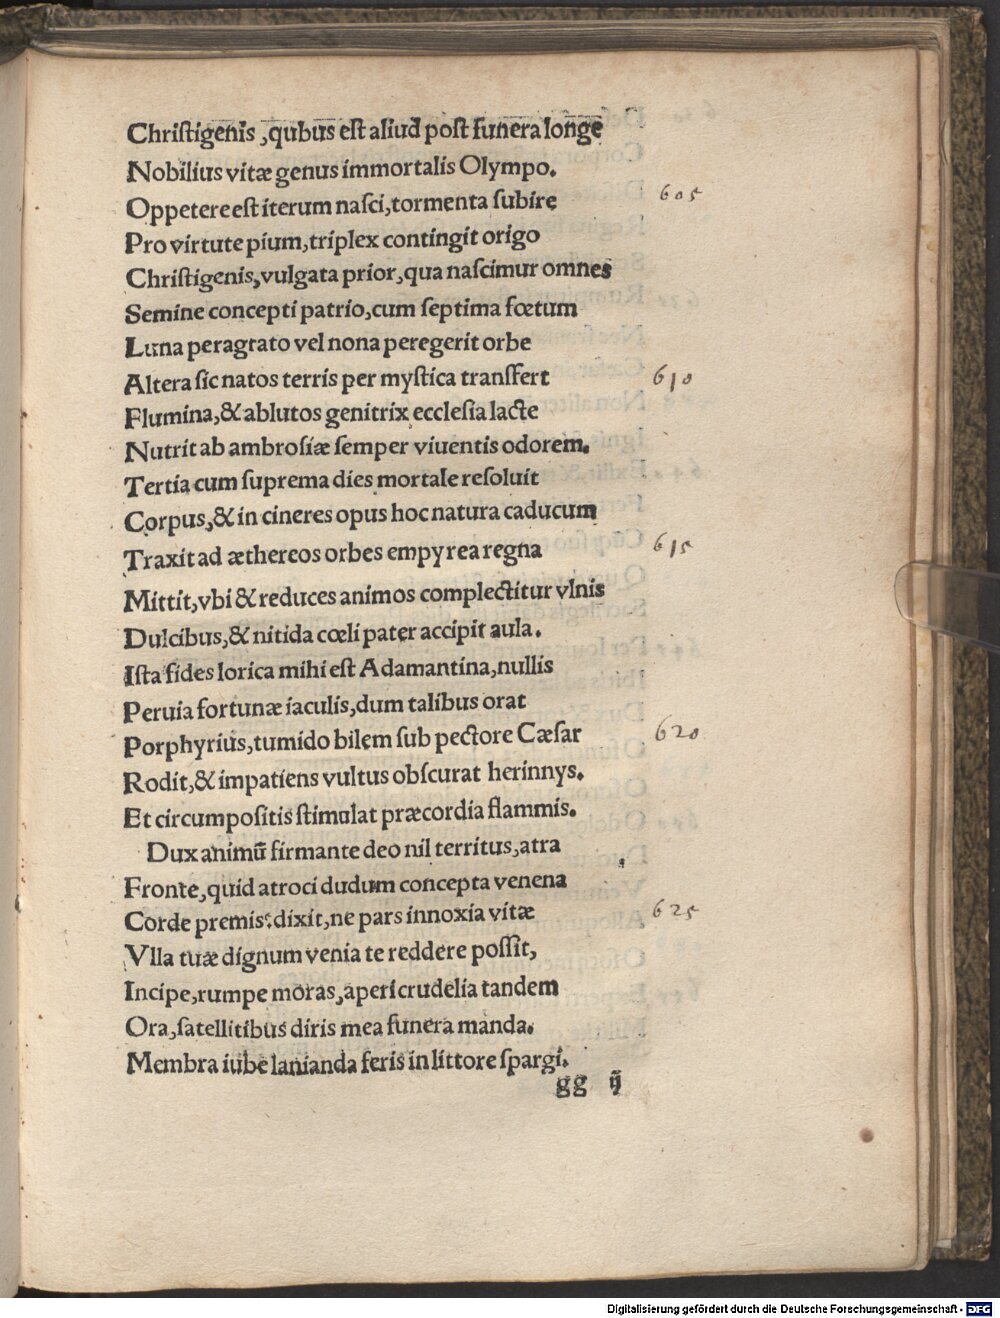 Chriſtigenis, qubus eſt aliud poſt funera longe
Nobilius vitæ genus immortalis Olympo.
Oppetere eſt iterum naſci, tormenta ſubire 605
Pro virtute pium, triplex contingit origo
Chriſtigenis, vulgata prior, qua naſcimur omnes
Semine concepti patrio, cum ſeptima fœtum
Luna peragrato vel nona peregerit orbe
Altera ſic natos terris per myſtica tranſfert 610
Flumina, & ablutos genitrix eccleſia lacte
Nutrit ab ambroſiæ ſemper viuentis odorem.
Tertia cum ſuprema dies mortale reſoluit
Corpus, & in cineres opus hoc natura caducum
Traxit ad æthereos orbes empyrea regna 615
Mittit, vbi & reduces animos complectitur vlnis
Dulcibus, & nitida cœli pater accipit aula.
Iſta fides lorica mihi eſt Adamantina, nullis
Peruia fortunæ iaculis, dum talibus orat
Porphyrius, tumido bilem ſub pectore Cæſar 620
Rodit, & impatiens vultus obſcurat herinnys.
Et circumpoſitis ſtimulat præcordia flammis.
Dux animū firmante deo nil territus, atra
Fronte, quid atroci dudum concepta venena
Corde premis: dixit, ne pars innoxia vitæ 625
Vlla tuæ dignum venia te reddere poſſit,
Incipe, rumpe moras, aperi crudelia tandem
Ora, ſatellitibus diris mea funera manda.
Membra iube lanianda feris in littore ſpargi.
gg ij
Digitalisierung gefördert durch die Deutsche Forschungsgemeinschaft - DFG